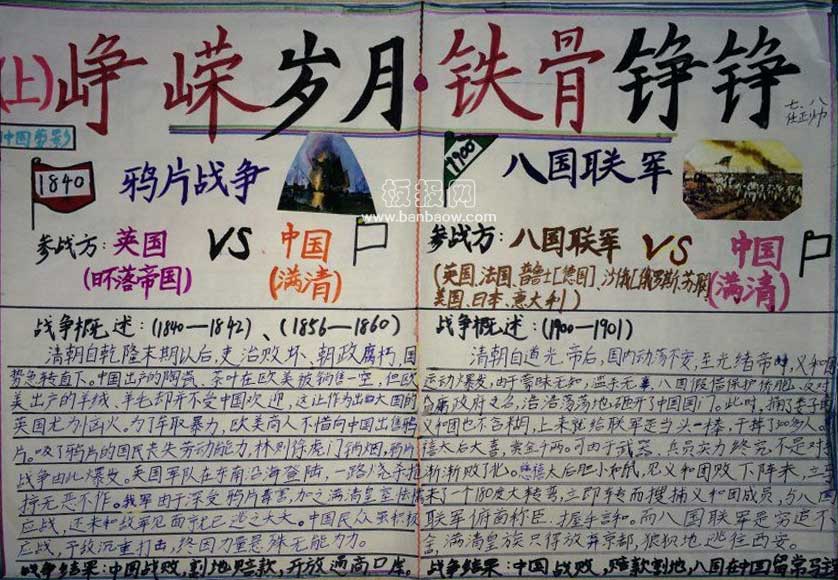 (上)峥嵘岁月 铁骨铮铮
七、八
任正帅
中国剪影
1840 鸦片战争
板报网
www.banbaow.com
参战方: 英国 VS 中国
(日不落帝国) (满清)
战争概述:(1840—1842)、(1856—1860)
清朝自乾隆末期以后,吏治败坏、朝政腐朽,国
势急转直下。中国出产的陶瓷、茶叶在欧美被销售一空,但欧
美出产的羊绒、羊毛却并不受中国欢迎,这让作为出口大国的
英国尤为恼火。为了牟取暴力,欧美商人不惜向中国出售鸦
片。吸了鸦片的国民丧失劳动能力,林则徐虎门销烟,鸦片
战争由此爆发。英国军队在东南沿海登陆,一路烧杀抢
掠无恶不作。我军由于深受鸦片毒害,加之满清皇室
应战,还未和敌军见面就已逃之夭夭。中国民众虽积极
应战,予敌沉重打击,终因力量悬殊无能为力。
战争结果:中国战败,割地赔款,开放通商口岸。
1900 八国联军
参战方: 八国联军 VS 中国
(英国、法国、普鲁士[德国]、沙俄[俄罗斯、苏联] (满清)
美国、日本、意大利)
战争概述:(1900—1901)
清朝自道光帝后,国内动荡不安,至光绪帝时,义和团
运动爆发,由于蒙昧无知,滥杀无辜,八国假借保护侨胞、
腐政府之名,浩浩荡荡地砸开了中国国门。此时,捅了娄子
义和团也不含糊,上来就给联军迎当头一棒,干掉了300多人。
禧太后大喜,赏金千两。可由于武器、兵员实力终究不是对
渐渐败了北。慈禧太后胆小如鼠,见义和团败下阵来,立
来了一个180度大转弯,立即转而搜捕义和团成员,与八
联军俯首称臣、握手言和。而八国联军是穷追不
舍,满清皇族只得放弃京都,狼狈地逃往西安。
战争结果:中国战败,赔款割地,八国在中国留常